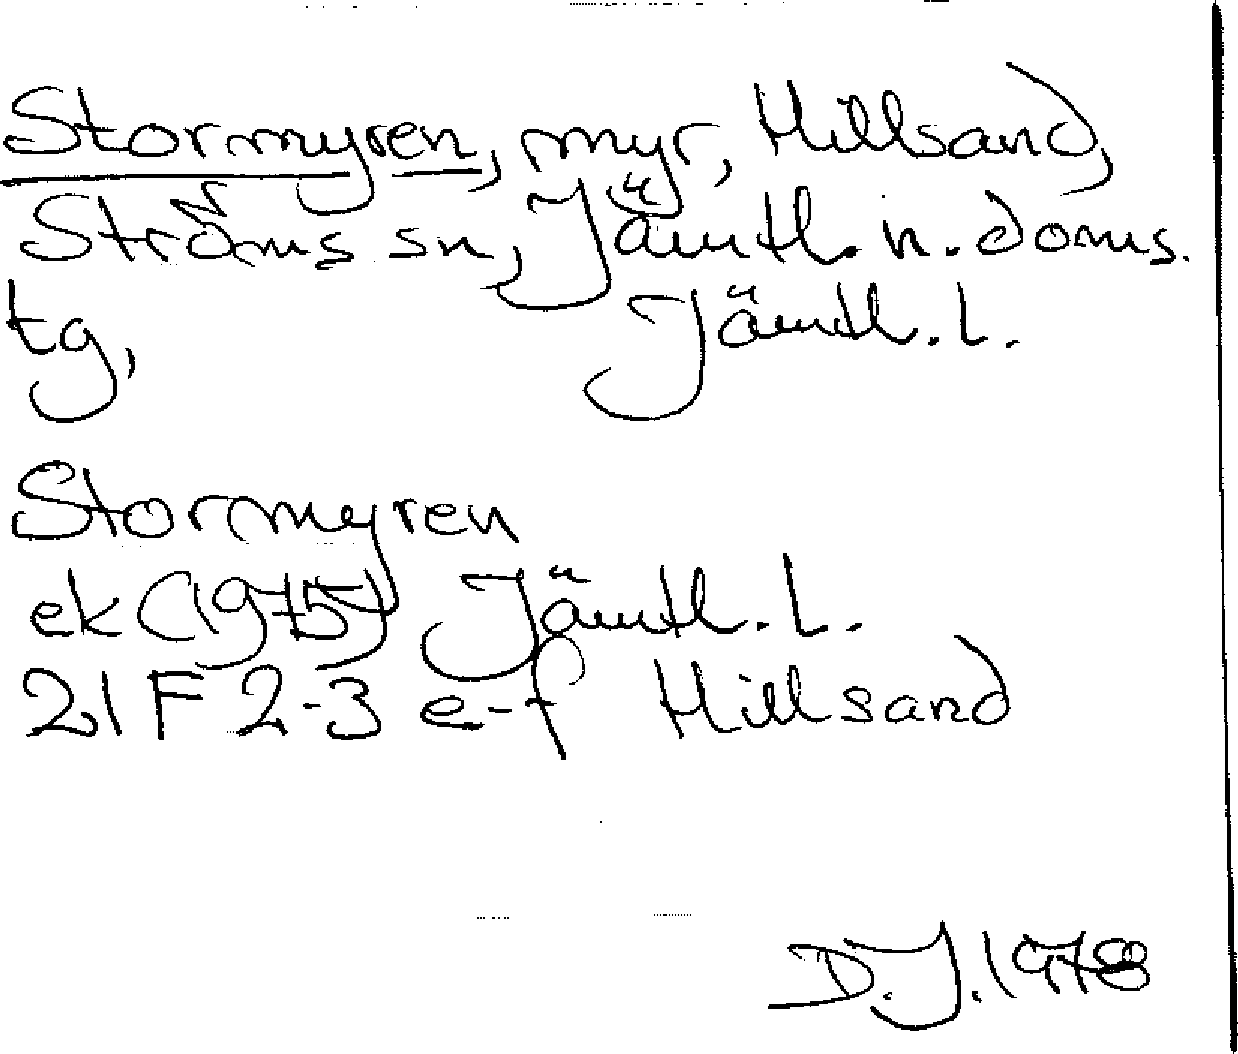 Stormyren, myr, Hillsand,
Ströms sn, Jämtl. n. doms.
tg, Jämtl. l.
Stormyren
ek (1975) Jämtl. L.
21 F 2-3 e-f Hillsand
D.J. 1978